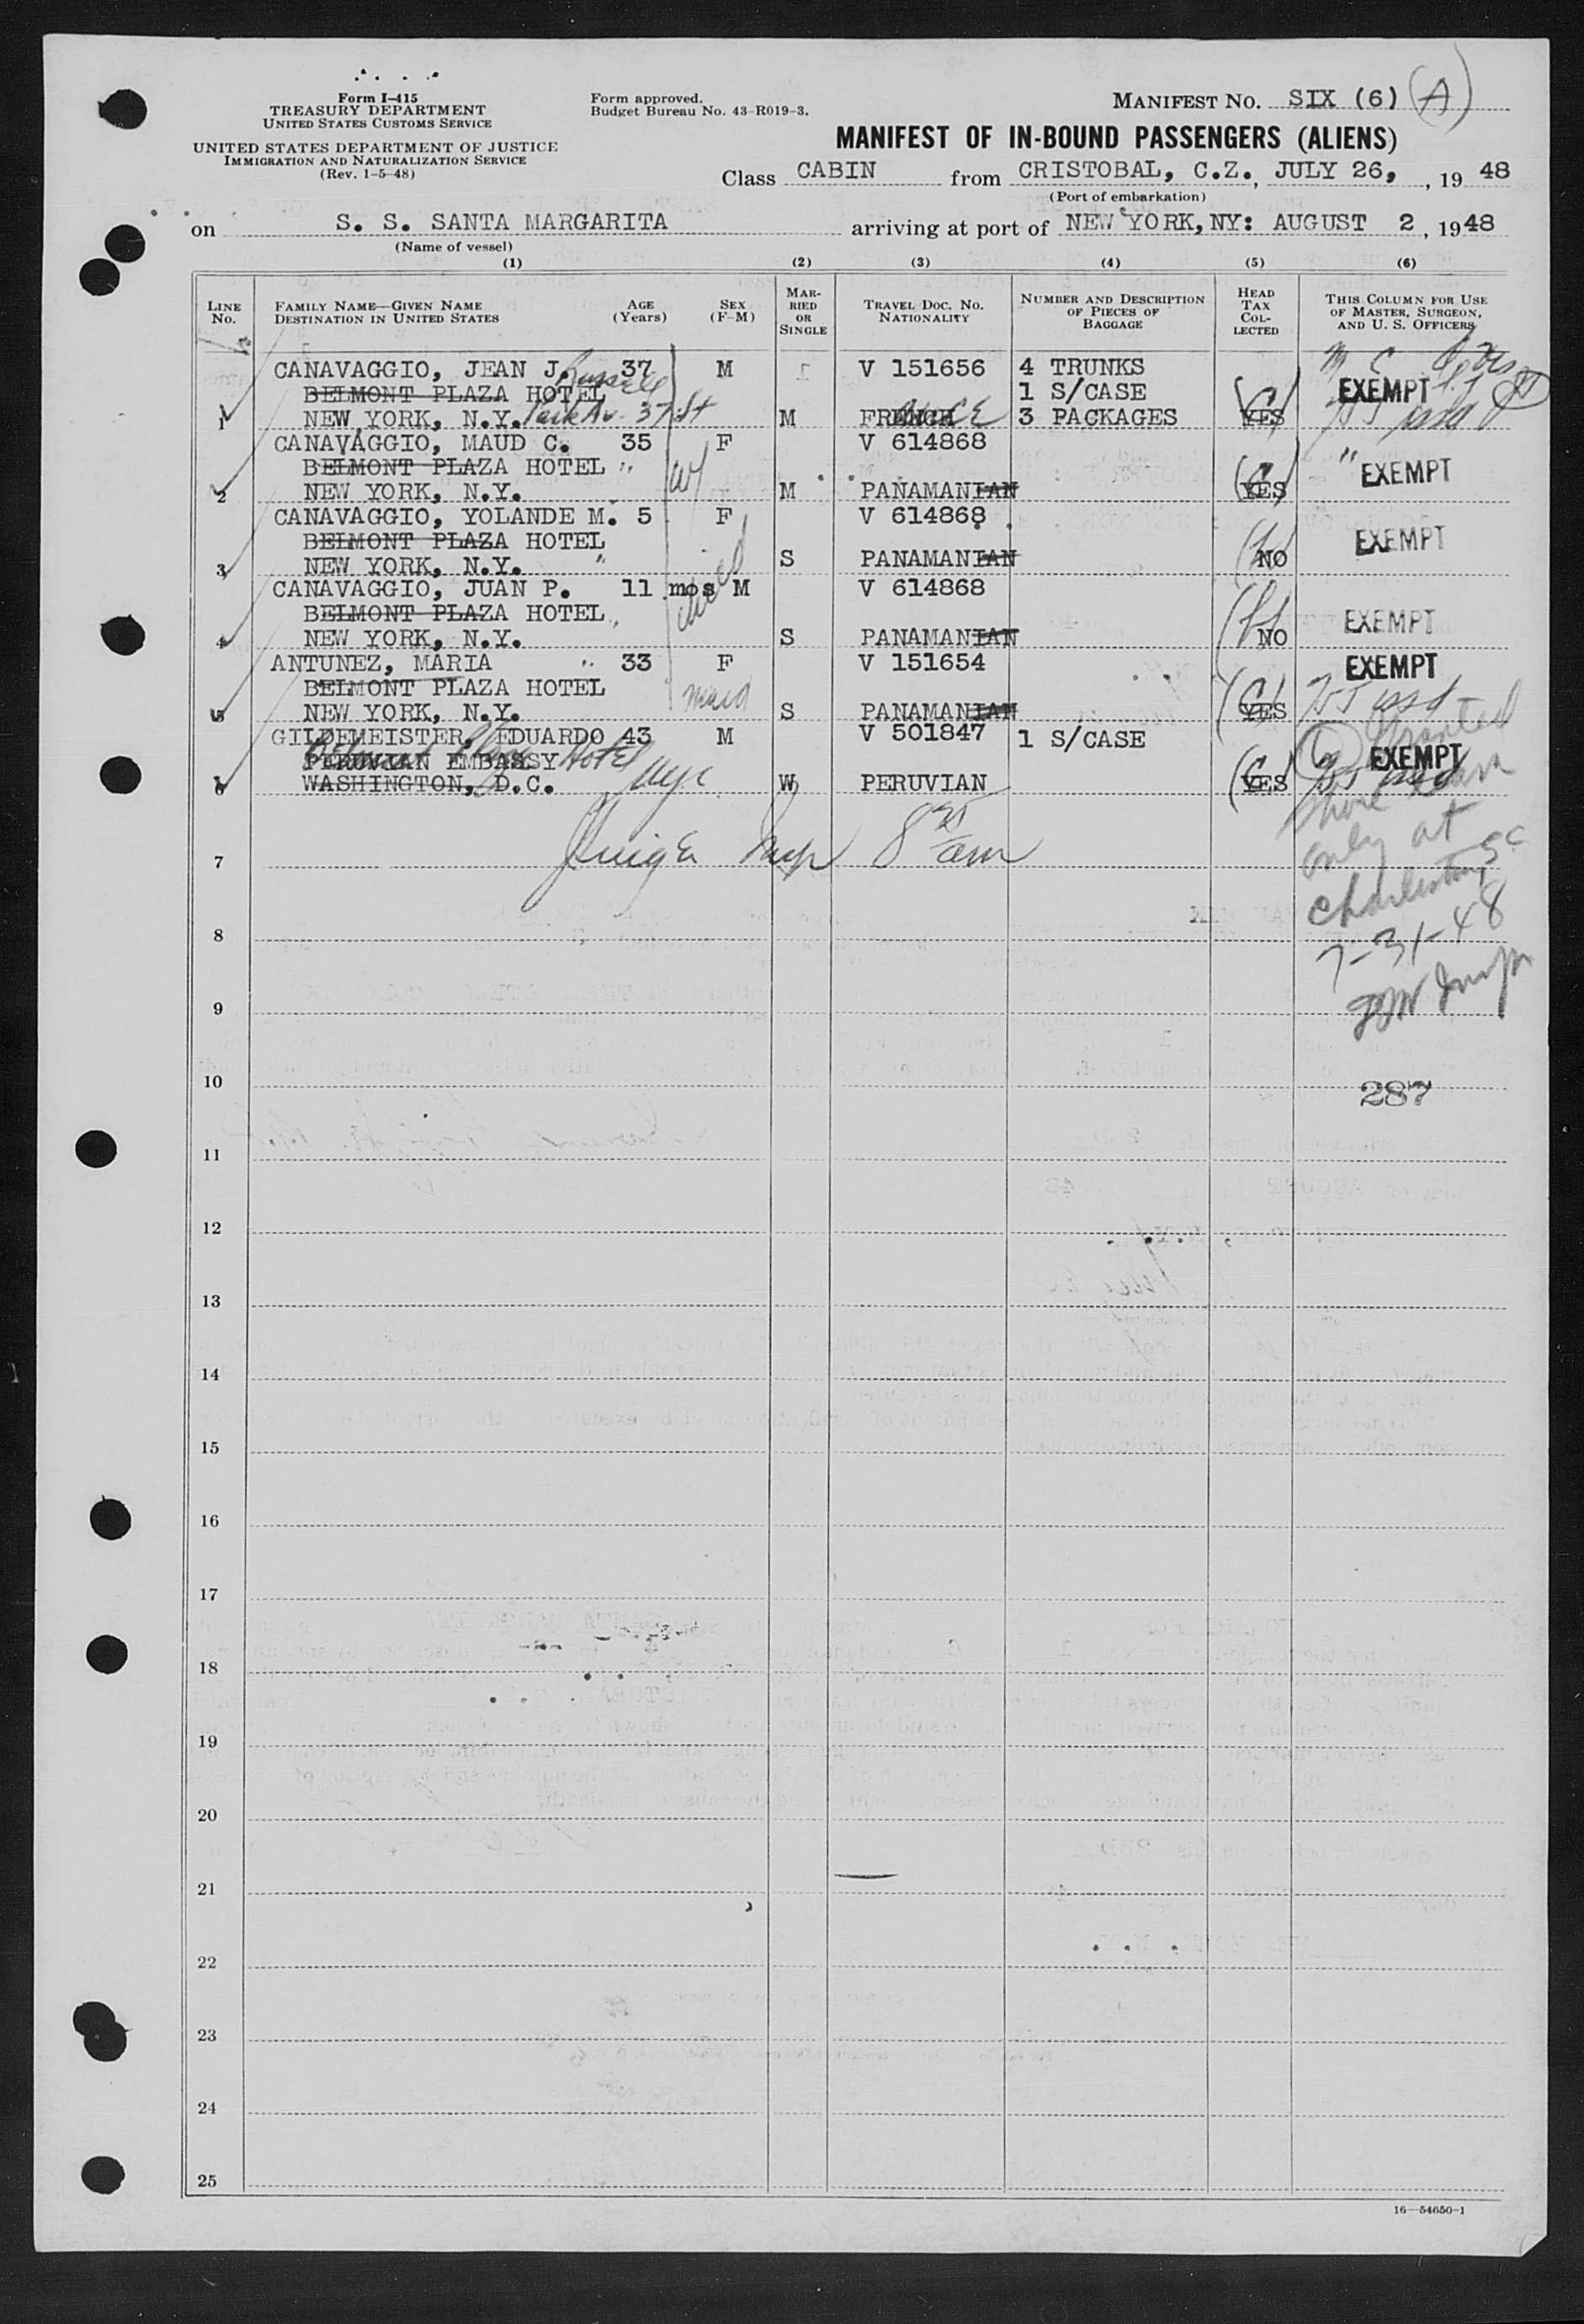 Form I-415
TREASURY DEPARTMENT
UNITED STATES CUSTOMS SERVICE
UNITED STATES DEPARTMENT OF JUSTICE
IMMIGRATION AND NATURALIZATION SERVICE
(Rev. 1-5-48)
Form approved.
Budget Bureau No. 43-R019-3.
MANIFEST NO. SIX (6) (A)
MANIFEST OF IN-BOUND PASSENGERS (ALIENS)
Class CABIN from CRISTOBAL, C.Z., JULY 26, , 19 48
(Port of embarkation)
on S. S. SANTA MARGARITA arriving at port of NEW YORK, NY: AUGUST 2 , 1948
(Name of vessel)
(1) (2) (3) (4) (5) (6)
LINE NO.
FAMILY NAME—GIVEN NAME
DESTINATION IN UNITED STATES
AGE (Years)
SEX (F-M)
MARRIED OR SINGLE
TRAVEL DOC. NO.
NATIONALITY
NUMBER AND DESCRIPTION OF PIECES OF BAGGAGE
HEAD TAX COLLECTED
THIS COLUMN FOR USE OF MASTER, SURGEON, AND U. S. OFFICERS
CANAVAGGIO, JEAN J. 37 M V 151656 4 TRUNKS
BELMONT PLAZA HOTEL Russell 1 S/CASE EXEMPT
1 NEW YORK, N.Y. Park Av. 37 St M FRENCH 3 PACKAGES YES
CANAVAGGIO, MAUD C. 35 F V 614868
BELMONT PLAZA HOTEL " " EXEMPT
2 NEW YORK, N.Y. M PANAMANIAN YES
CANAVAGGIO, YOLANDE M. 5 F V 614868
BELMONT PLAZA HOTEL EXEMPT
3 NEW YORK, N.Y. " S PANAMANIAN NO
CANAVAGGIO, JUAN P. 11 mos M V 614868
BELMONT PLAZA HOTEL EXEMPT
4 NEW YORK, N.Y. S PANAMANIAN NO
ANTUNEZ, MARIA " 33 F V 151654 EXEMPT
BELMONT PLAZA HOTEL maid
5 NEW YORK, N.Y. S PANAMANIAN YES
GILDEMEISTER, EDUARDO 43 M V 501847 1 S/CASE Granted
PERUVIAN EMBASSY Belmont Plaza Hotel EXEMPT
6 WASHINGTON, D.C. nyc W PERUVIAN YES
shore leave
only at
Charleston, SC
7-31-48
7 Insp 8 am
8
9
10
287
11
12
13
14
15
16
17
18
19
20
21
22
23
24
25
16—54650-1